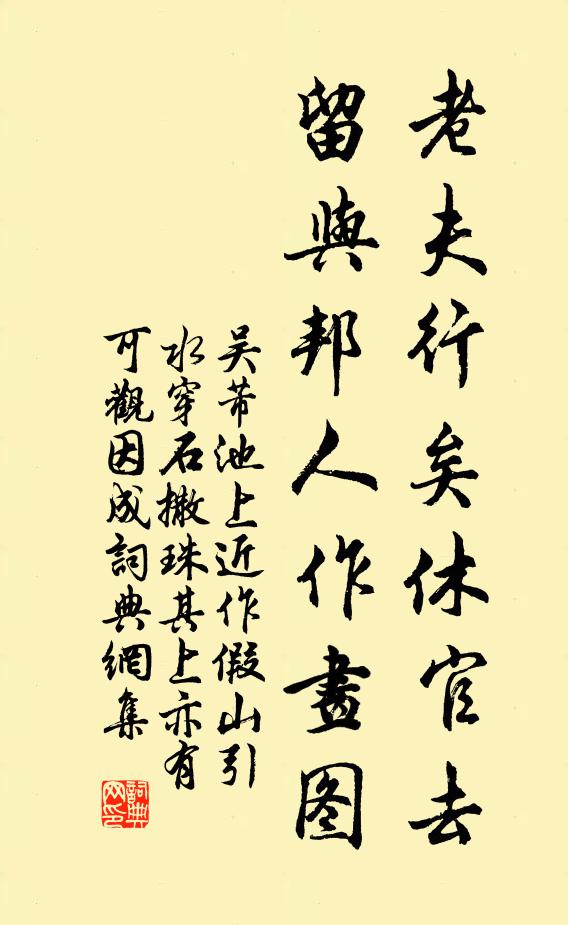 老夫行矣休官去
留與邦人作畫图
吴芾池上近作假山引
水穿石撒珠其上亦有
可觀因成詞典網集
詞典
网印